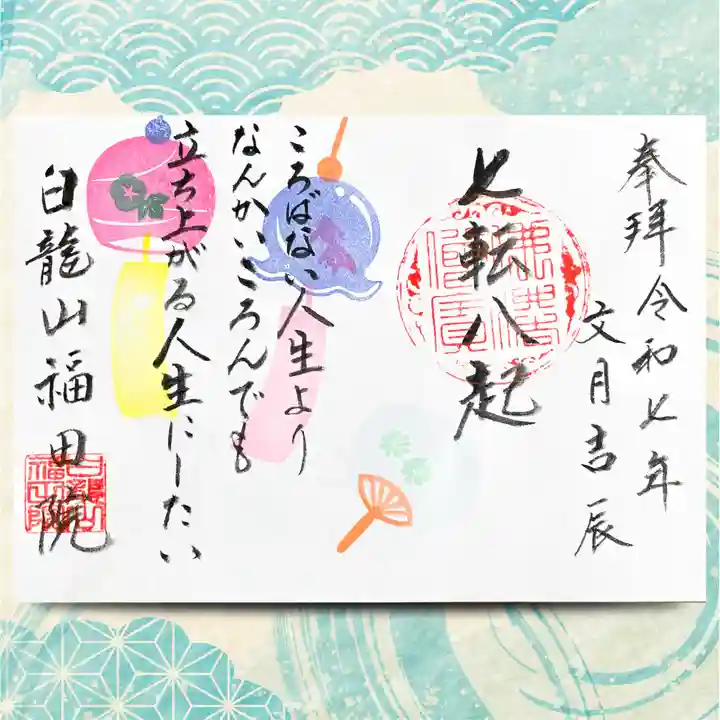 奉拝 令和七年
文月吉辰
七転八起
ころばない人生より
なんかいころんでも
立ち上がる人生にしたい
白龍山福田院